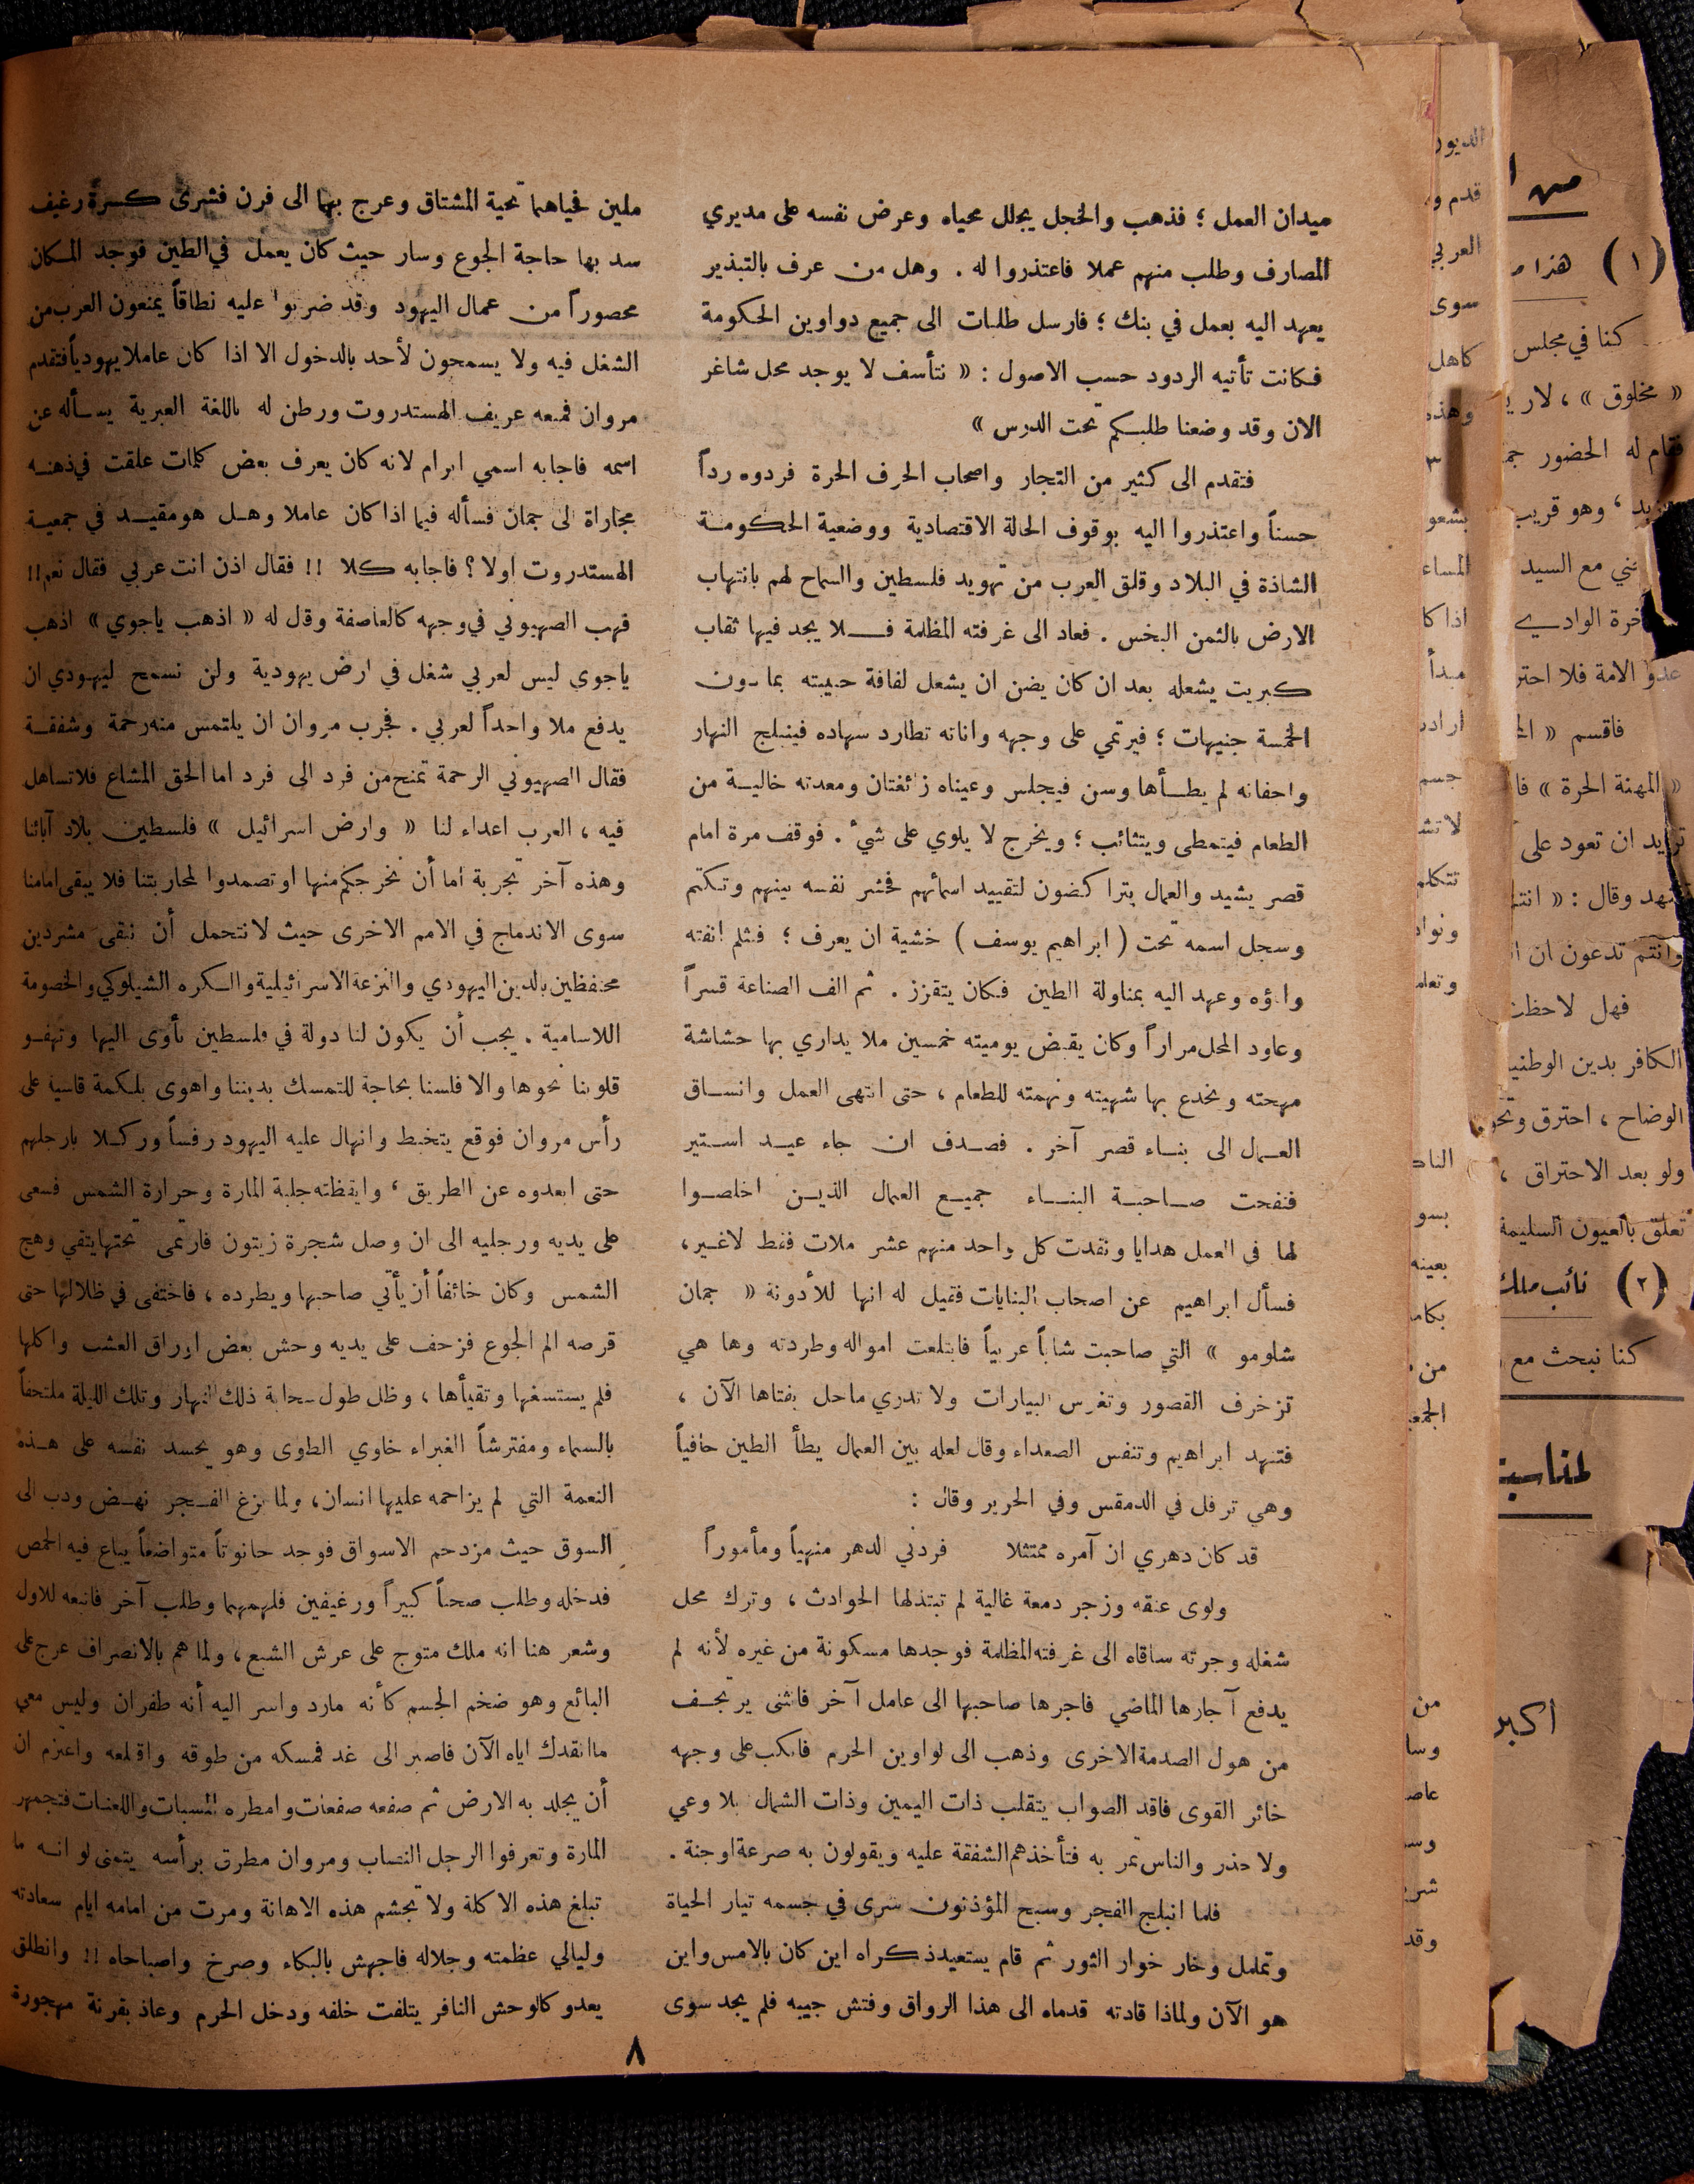 ميدان العمل ؛ فذهب والخجل يجلل محياه وعرض نفسه على مديري
المصارف وطلب منهم عملا فاعتذروا له . وهل من عرف بالتبذير
يعهد اليه بعمل في بنك ؛ فارسل طلبات الى جميع دواوين الحكومة
فكانت تأتيه الردود حسب الاصول : « نتأسف لا يوجد محل شاغر
الان وقد وضعنا طلبكم تحت الدرس »
فتقدم الى كثير من التجار واصحاب الحرف الحرة فردوه رداً
حسناً واعتذروا اليه بوقوف الحالة الاقتصادية ووضعية الحكومة
الشاذة في البلاد وقلق العرب من تهويد فلسطين والسماح لهم بانتهاب
الارض بالثمن البخس . فعاد الى غرفته المظلمة فلا يجد فيها ثقاب
كبريت يشعله بعد ان كان يضن ان يشعل لفافة حبيبته بما دون
الخمسة جنيهات ؛ فيرتمي على وجهه واناته تطارد سهاده فينبلج النهار
واجفانه لم يطأها وسن فيجلس وعيناه زائغتان ومعدته خالية من
الطعام فيتمطى ويتثائب ؛ ويخرج لا يلوي على شيء . فوقف مرة امام
قصر يشيد والعمال يتراكضون لتقييد اسمائهم فحشر نفسه بينهم وتكتم
وسجل اسمه تحت ( ابراهيم يوسف ) خشية ان يعرف ؛ فثلم انفته
واباؤه وعهد اليه بمناولة الطين فكان يتقزز . ثم الف الصناعة قسراً
وعاود المحل مراراً وكان يقبض يوميته خمسين ملا يداري بها حشاشة
مهجته ويخدع بها شهيته ونهمته للطعام ، حتى انتهى العمل وانساق
العمال الى بناء قصر آخر . فصدف ان جاء عيد استير
فنفحت صاحبة البناء جميع العمال الذين اخلصوا
لها في العمل هدايا ونقدت كل واحد منهم عشر ملات فقط لاغير،
فسأل ابراهيم عن اصحاب البنايات فقيل له انها للأدونة « جمان
شلومو » التي صاحبت شاباً عربياً فابتلعت امواله وطردته وها هي
تزخرف القصور وتغرس البيارات ولا تدري ماحل بفتاها الآن ،
فتنهد ابراهيم وتنفس الصعداء وقال لعله بين العمال يطأ الطين حافياً
وهي ترفل في الدمقس وفي الحرير وقال :
قد كان دهري ان آمره ممتثلا فردني الدهر منهياً ومأموراً
ولوى عنقه وزجر دمعة غالية لم تبتذلها الحوادث ، وترك محل
شغله وجرته ساقاه الى غرفته المظلمة فوجدها مسكونة من غيره لأنه لم
يدفع آجارها الماضي فاجرها صاحبها الى عامل آخر فانثنى يرتجف
من هول الصدمة الاخرى وذهب الى لواوين الحرم فانكب على وجهه
خائر القوى فاقد الصواب يتقلب ذات اليمين وذات الشمال بلا وعي
ولا حذر والناس تمر به فتأخذهم الشفقة عليه ويقولون به صرعة اوجنة .
فلما انبلج الفجر وسبح المؤذنون سرى في جسمه تيار الحياة
وتململ وخار خوار الثور ثم قام يستعيد ذكراه اين كان بالامس واين
هو الآن ولماذا قادته قدماه الى هذا الرواق وفتش جيبه فلم يجد سوى
ملين فحياهما تحية المشتاق وعرج بهما الى فرن فشرى كسرة رغيف
سد بها حاجة الجوع وسار حيث كان يعمل في الطين فوجد المكان
محصوراً من عمال اليهود وقد ضربوا عليه نطاقاً يمنعون العرب من
الشغل فيه ولا يسمحون لأحد بالدخول الا اذا كان عاملا يهودياً فتقدم
مروان فمنعه عريف الهستدروت ورطن له باللغة العبرية يسأله عن
اسمه فاجابه اسمي ابرام لانه كان يعرف بعض كلمات علقت في ذهنه
مجاراة الى جمان فسأله فيما اذا كان عاملا وهل هو مقيد في جمعية
الهستدروت اولا ؟ فاجابه كلا !! فقال اذن انت عربي فقال نعم!!
فهب الصهيوني في وجهه كالعاصفة وقل له « اذهب ياجوي » اذهب
ياجوي ليس لعربي شغل في ارض يهودية ولن نسمح ليهودي ان
يدفع ملا واحداً لعربي . فجرب مروان ان يلتمس منه رحمة وشفقة
فقال الصهيوني الرحمة تمنح من فرد الى فرد اما الحق المشاع فلا تساهل
فيه ، العرب اعداء لنا « وارض اسرائيل » فلسطين بلاد آبائنا
وهذه آخر تجربة اما أن نخرجكم منها او تصمدوا لمحاربتنا فلا يبقى امامنا
سوى الاندماج في الامم الاخرى حيث لانتحمل أن نبقى مشردين
محتفظين بالدين اليهودي والنزعة الاسرائيلية والكره الشيلوكي والخصومة
اللاسامية . يجب أن يكون لنا دولة في فلسطين نأوى اليها وتهفو
قلوبنا نحوها والا فلسنا بحاجة للتمسك بديننا واهوى بلكمة قاسية على
رأس مروان فوقع يتخبط وانهال عليه اليهود رفساً وركلا بارجلهم
حتى ابعدوه عن الطريق ، وايقظته جلبة المارة وحرارة الشمس فسعى
على يديه ورجليه الى ان وصل شجرة زيتون فارتمى تحتها يتقي وهج
الشمس وكان خائفاً أن يأتي صاحبها ويطرده ، فاختفى في ظلالها حتى
قرصه الم الجوع فزحف على يديه وحش بعض اوراق العشب واكلها
فلم يستسغها وتقيأها ، وظل طول سحابة ذلك النهار وتلك الليلة ملتحفاً
بالسماء ومفترشاً الغبراء خاوي الطوى وهو يحسد نفسه على هذه
النعمة التي لم يزاحمه عليها انسان، ولما بزغ الفجر نهض ودب الى
السوق حيث مزدحم الاسواق فوجد حانوتاً متواضعاً يباع فيه الحمص
فدخله وطلب صحناً كبيراً ورغيفين فلهمهما وطلب آخر فاتبعه للاول
وشعر هنا انه ملك متوج على عرش الشبع ، ولما هم بالانصراف عرج على
البائع وهو ضخم الجسم كأنه مارد واسر اليه أنه طفران وليس معي
ما انقدك اياه الآن فاصبر الى غد فمسكه من طوقه واقلعه واعتزم ان
أن يجلد به الارض ثم صفعه صفعات وامطره المسبات واللعنات فتجمهر
المارة وتعرفوا الرجل النصاب ومروان مطرق برأسه يتمنى لو انه ما
تبلغ هذه الاكلة ولا تجشم هذه الاهانة ومرت من امامه ايام سعادته
وليالي عظمته وجلاله فاجهش بالبكاء وصرخ واصباحاه !! وانطلق
يعدو كالوحش النافر يتلفت خلفه ودخل الحرم وعاذ بقرنة مهجورة
٨
الديور
قدم و
العربي
سوى
كاهل
وهذه
٣
بشعو
المساء
اذا كا
مبدأ
ارادر
جسم
لاتش
تتكلم
ونواد
وتعام
الناد
بسو
بعينه
بكام
من
الجمع
من
وسا
عاص
وسر
شر
وقد
من
( ١ ) هذا
كنا في مجلس
« مخلوق » ،
فقام له الحضور
، وهو قريب
ني مع السيد
خرة الوادي
عدو الامة فلا احتر
فاقسم «
« المهنة الحرة » فا
تريد ان تعود على
وقال : « انتم
وانتم تدعون ان
فهل لاحظت
الكافر بدين الوطنية
الوضاح ، احترق
ولو بعد الاحتراق ،
تعلق بالعيون السليمة
( ٢ ) نائب ملك
كنا نبحث مع
لمناسبة
اكبر